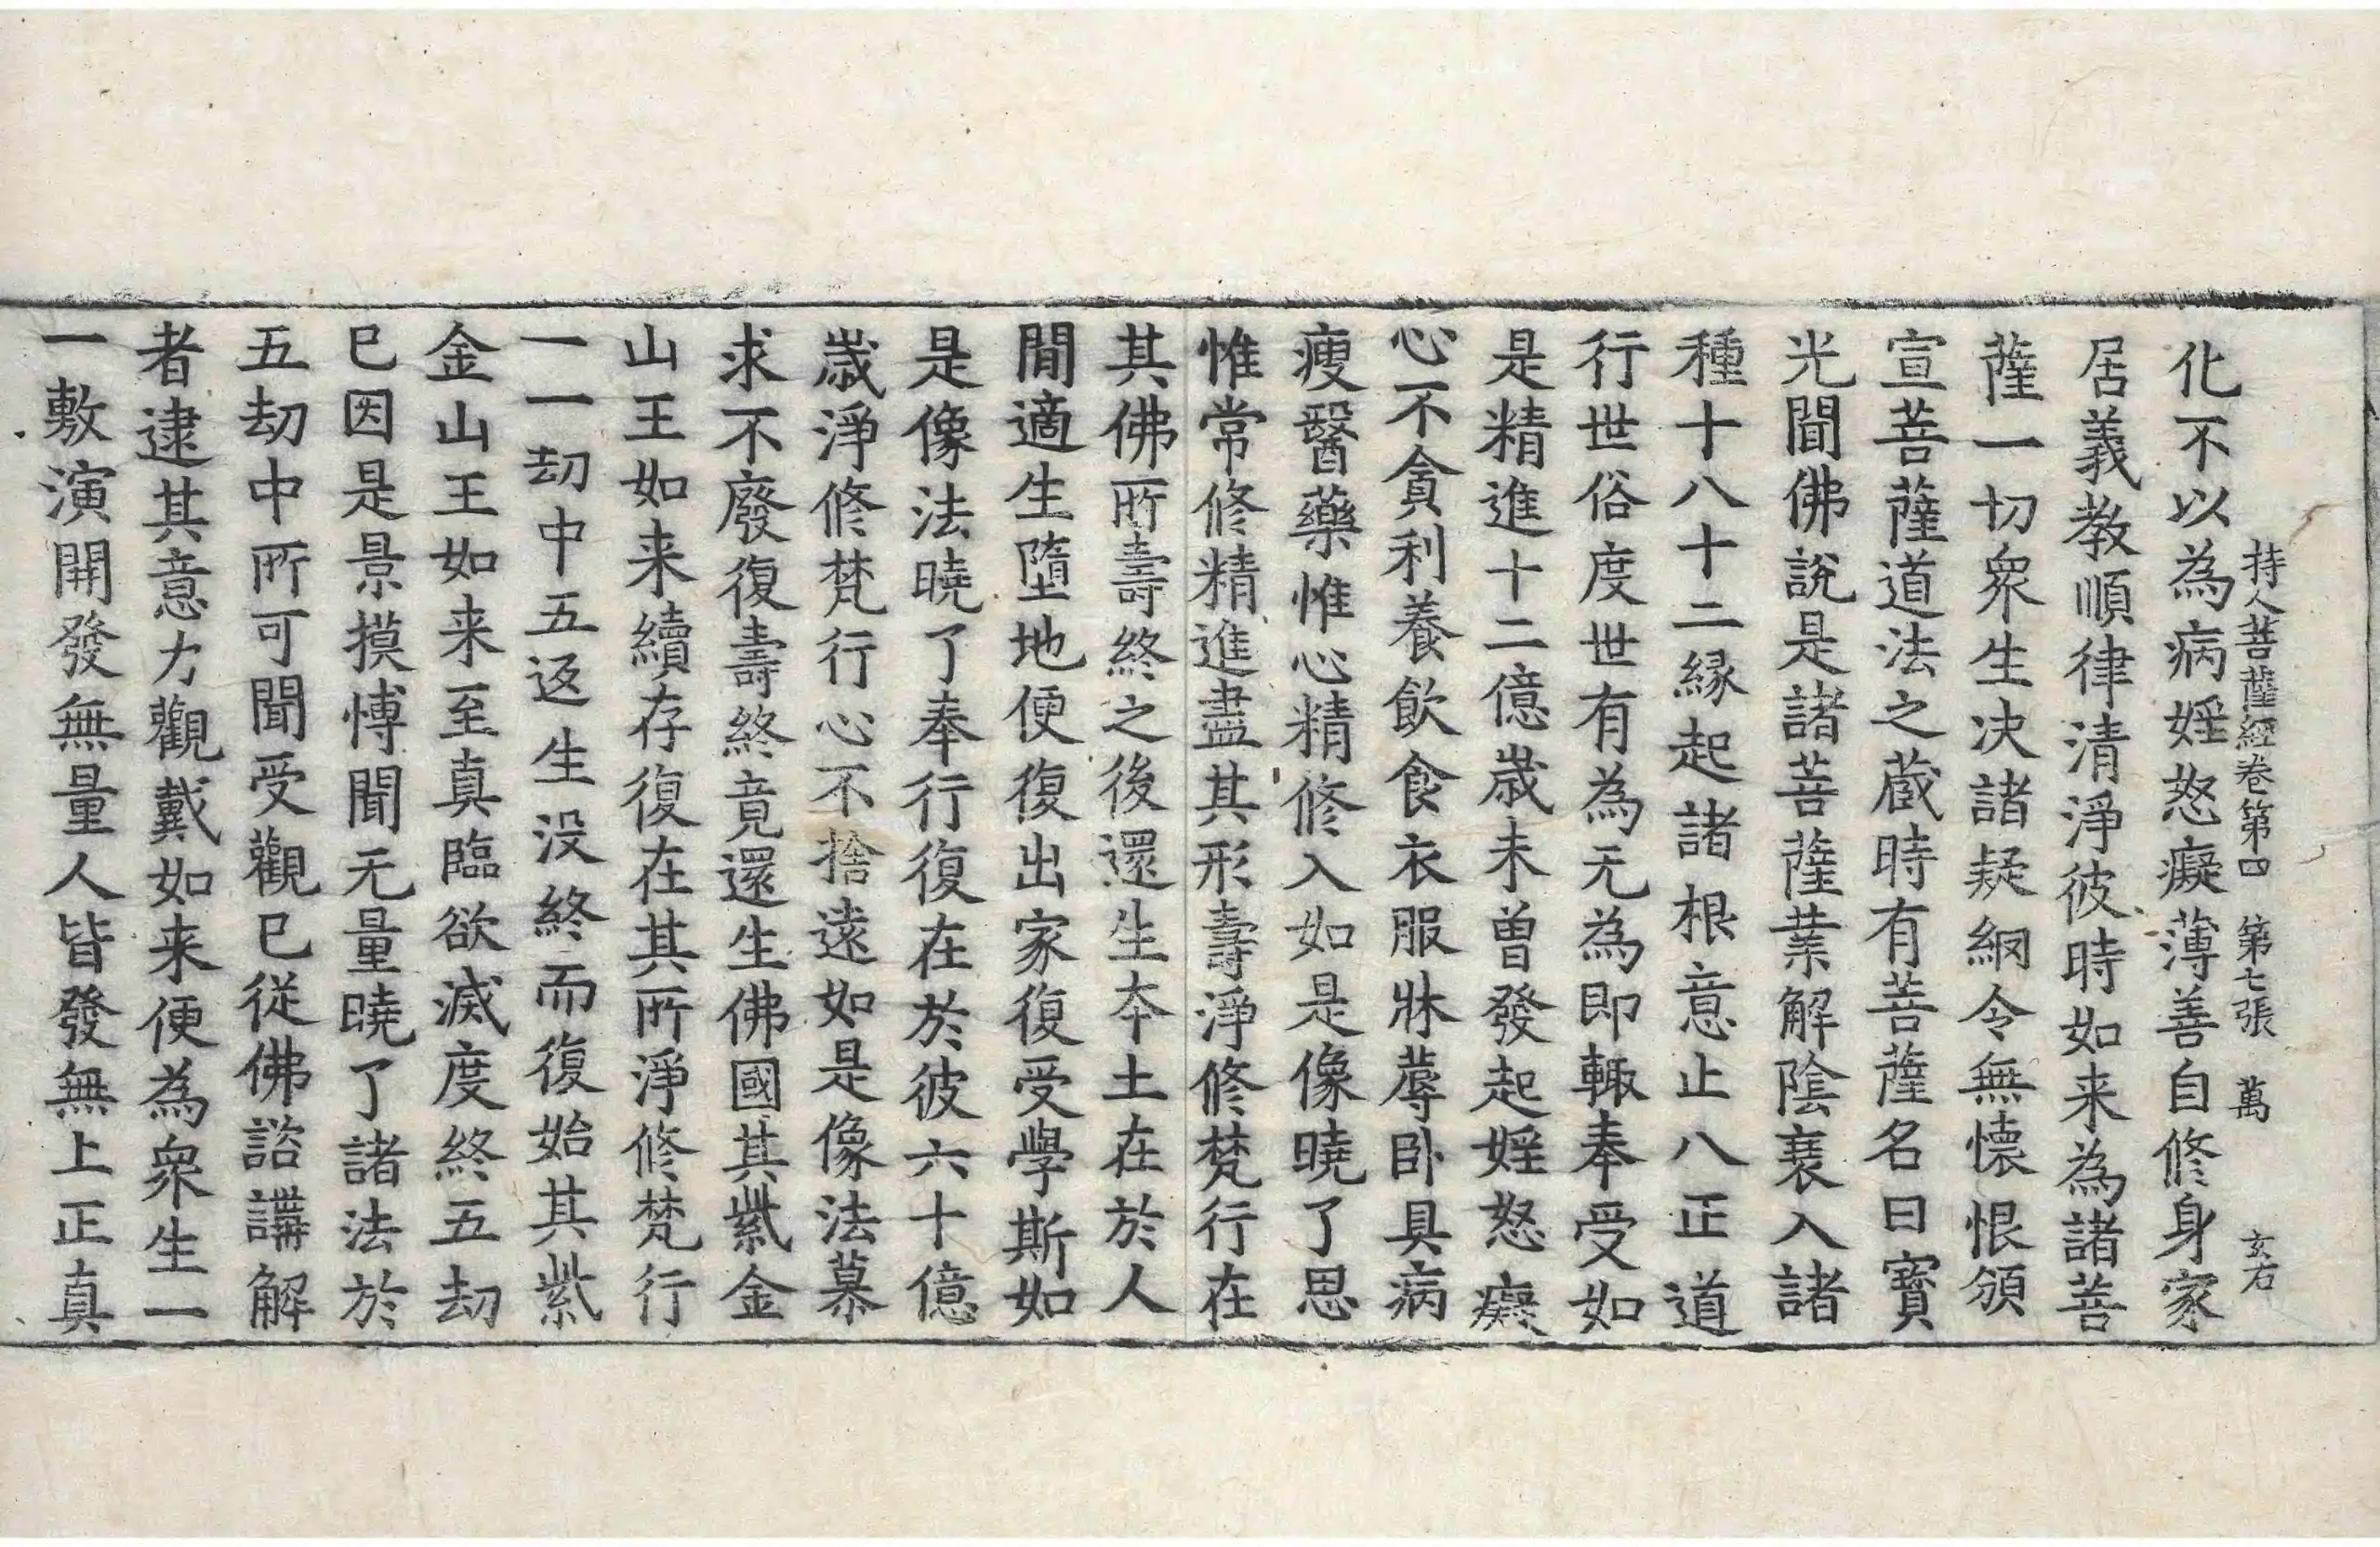 持人菩薩經卷第四 第七張 萬 玄右
化不以為病婬怒癡薄善自修身家
居義教順律清淨彼時如来為諸菩
薩一切衆生决諸疑網令無懷恨頒
宣菩薩道法之蔵時有菩薩名曰寶
光聞佛說是諸菩薩業解陰衰入諸
種十八十二縁起諸根意止八正道
行世俗度世有為无為即輙奉受如
是精進十二億歲未曽發起婬怒癡
心不貪利養飲食衣服牀蓐卧具病
瘦醫藥惟心精修入如是像曉了思
惟常修精進盡其形壽淨修梵行在
其佛所壽終之後還生本土在於人
間適生墮地便復出家復受學斯如
是像法曉了奉行復在於彼六十億
歲淨修梵行心不捨遠如是像法慕
求不廢復壽終竟還生佛國其紫金
山王如来續存復在其所淨修梵行
一一劫中五返生没終而復始其紫
金山王如来至真臨欲滅度終五劫
已因是景摸愽聞无量曉了諸法於
五劫中所可聞受觀已從佛諮講解
者逮其意力觀戴如来便為衆生一
一敷演開發無量人皆發無上正真